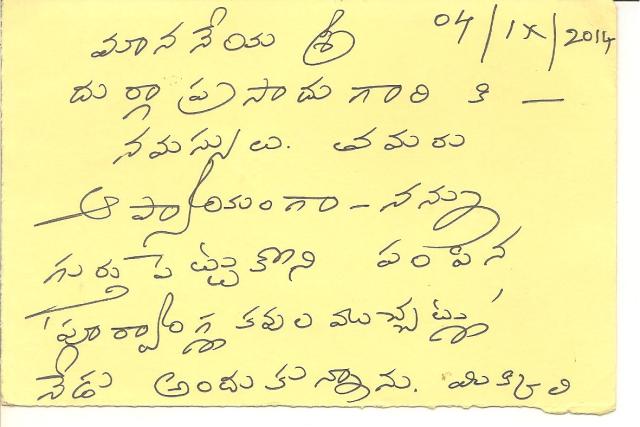 04/IX/2014
మాననీయ శ్రీ
దుర్గాప్రసాదు గారి కి —
నమస్సులు. తమరు
ఆప్యాయంగా – నన్ను
గుర్తు పెట్టుకొని పంపిన
'పూర్వాంగ్ల కవుల ముచ్చట్లు'
నేడు అందుకున్నాను. మిక్కిలి